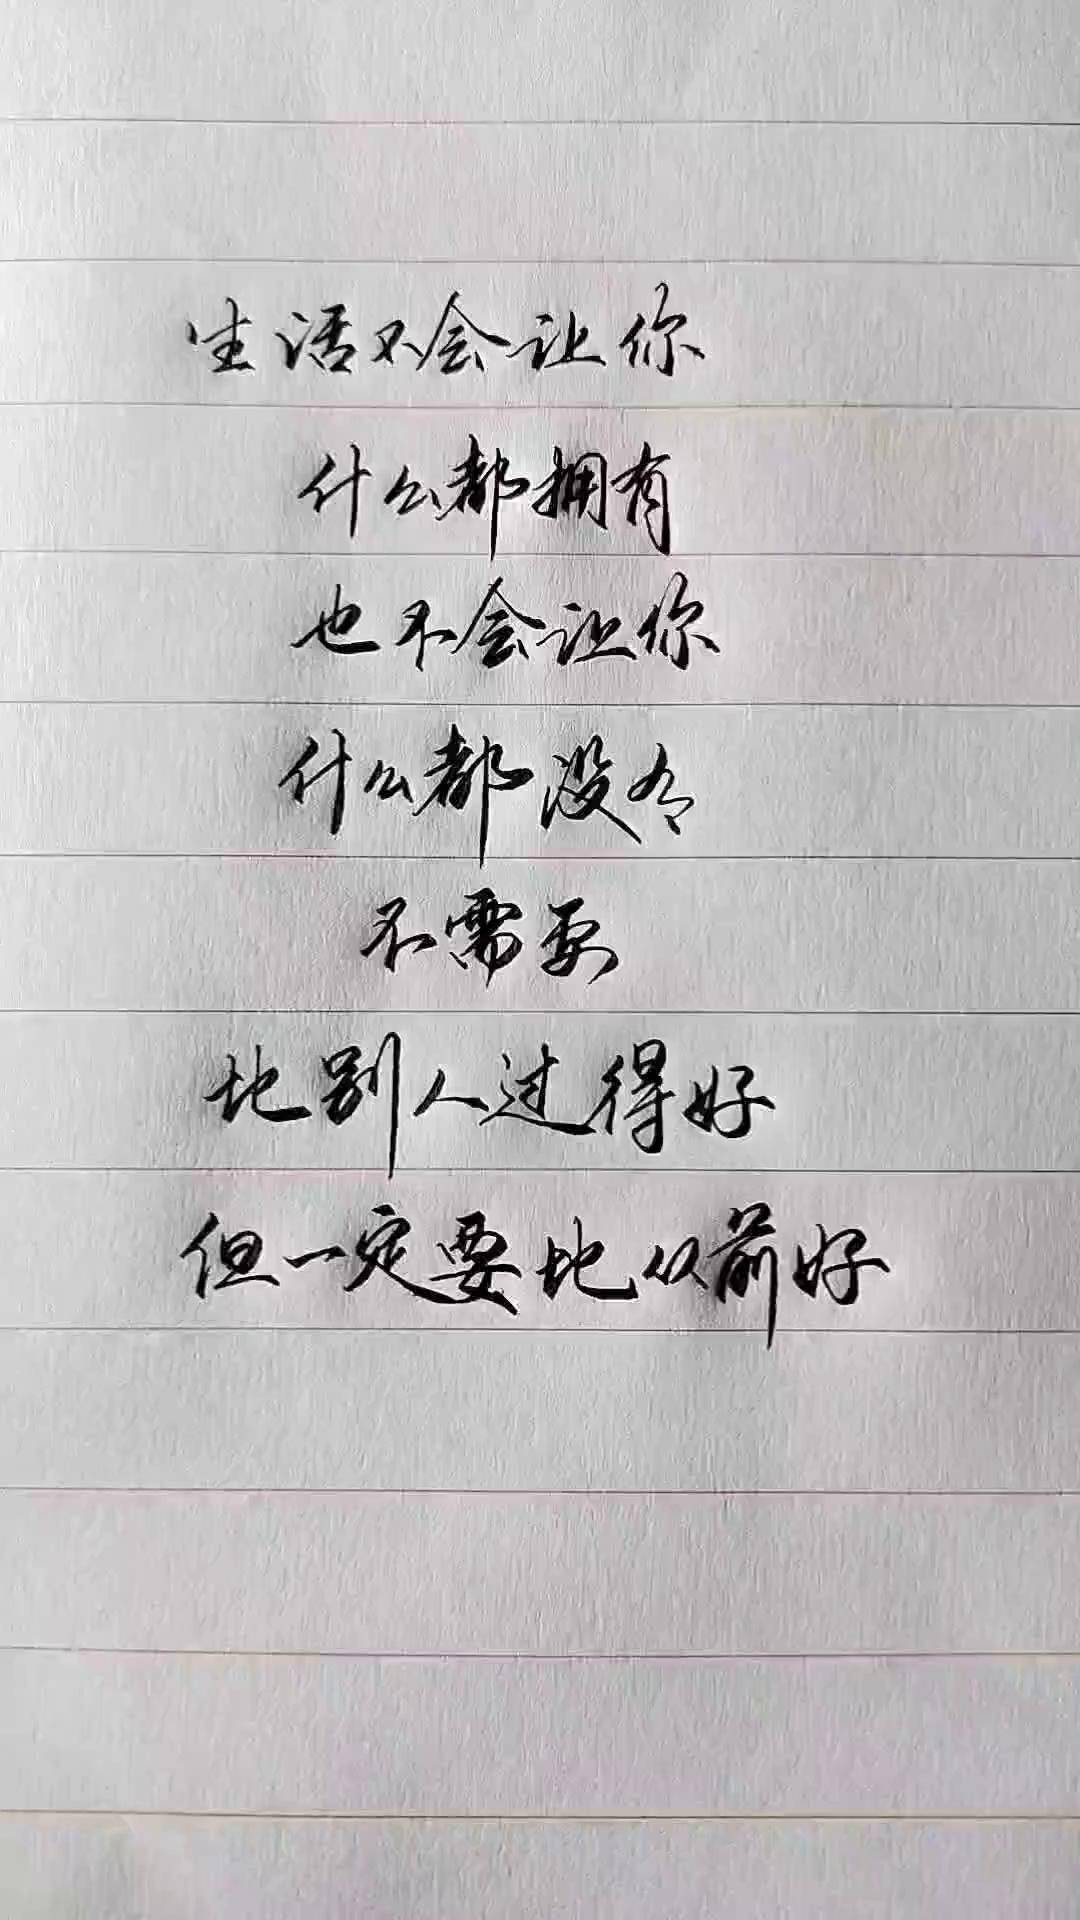 生活不会让你
什么都拥有
也不会让你
什么都没有
不需要
比别人过得好
但一定要比以前好